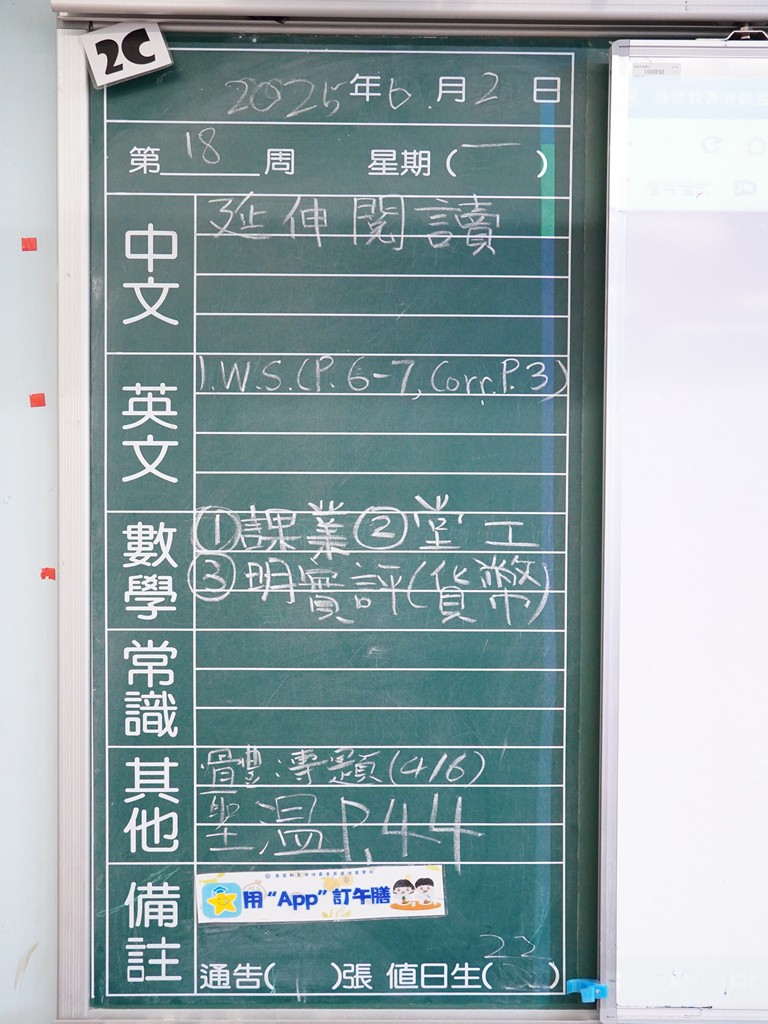 2C
2025年6月2日
第18周 星期(一)
中文
延伸閱讀
英文
1.W.S.(P.6-7,Corr.P.3)
數學
①課業②堂工
③明實評(貨幣)
常識
其他
體:專題(4/6)
聖溫P.44
備註
用“App”訂午膳
通告( )張 值日生(22)